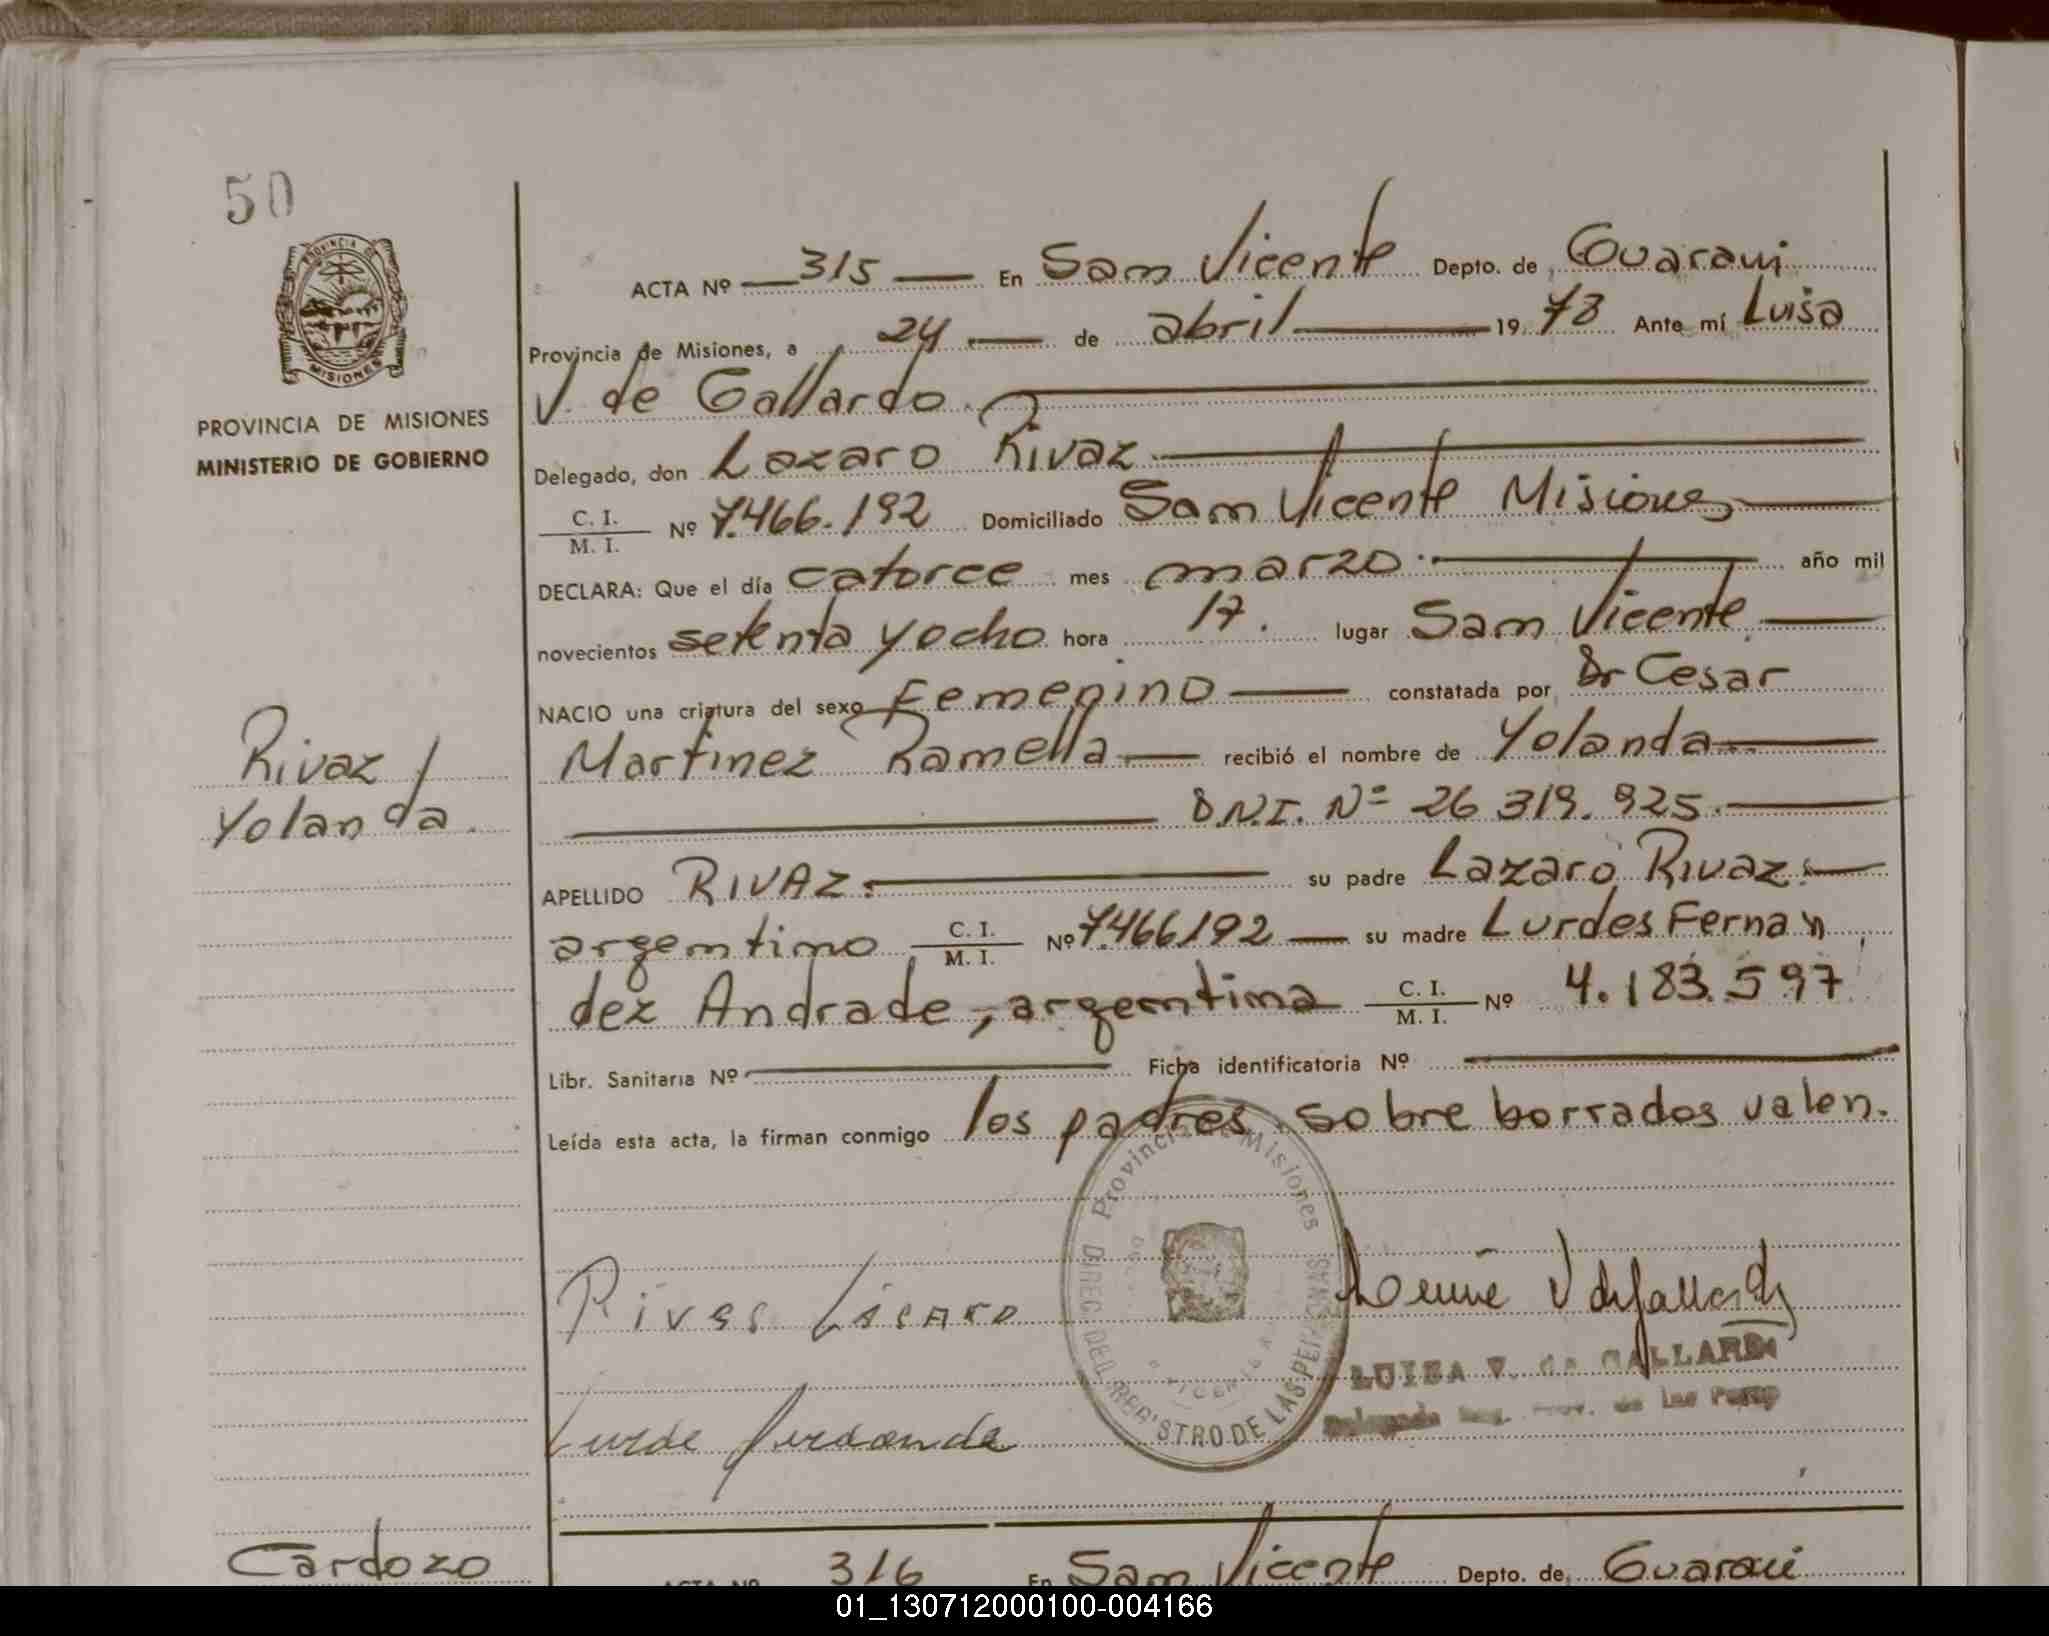 50
PROVINCIA DE MISIONES
PROVINCIA DE MISIONES
MINISTERIO DE GOBIERNO
ACTA Nº 315 En San Vicente Depto. de Guarani
Provincia de Misiones, a 24 de abril 1978 Ante mí Luisa
V. de Gallardo
Delegado, don Lazaro Rivaz
C. I. / M. I. Nº 7.466.192 Domiciliado San Vicente Misiones
DECLARA: Que el día catorce mes marzo año mil
novecientos setenta y ocho hora 17. lugar San Vicente
NACIO una criatura del sexo Femenino constatada por Dr Cesar
Martinez Ramella recibió el nombre de Yolanda
D.N.I. Nº 26 319.925.
Rivaz
Yolanda.
APELLIDO RIVAZ. su padre Lazaro Rivaz.
argentino C. I. / M. I. Nº 7.466192 su madre Lurdes Fernan
dez Andrade, argentina C. I. / M. I. Nº 4.183.597
Libr. Sanitaria Nº Ficha identificatoria Nº
Leída esta acta, la firman conmigo los padres. sobre borrados valen.
Provincia de Misiones
DIREC. DEL REGISTRO DE LAS PERSONAS
Rivas Lásaro
LUISA V. de GALLARDO
Cardozo
ACTA Nº 316 En San Vicente Depto. de Guarani
01_130712000100-004166